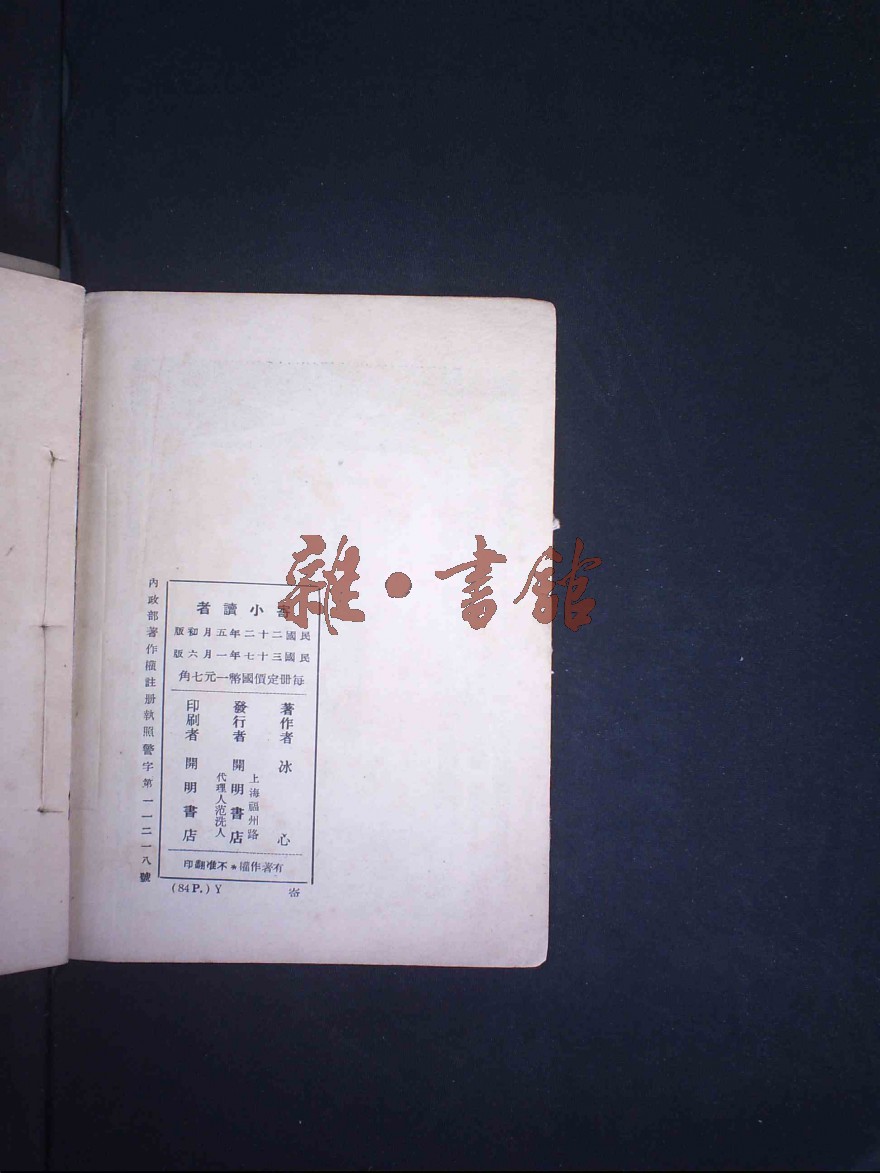 寄小讀者
民國二十二年五月初版
民國三十七年一月六版
每册定價國幣一元七角
著作者 冰心
發行者 開明書店
上海福州路
代理人范洗人
印刷者 開明書店
有著作權*不准翻印
(84P.) Y
內政部著作權註册執照警字第一一二一八號
雜·書館